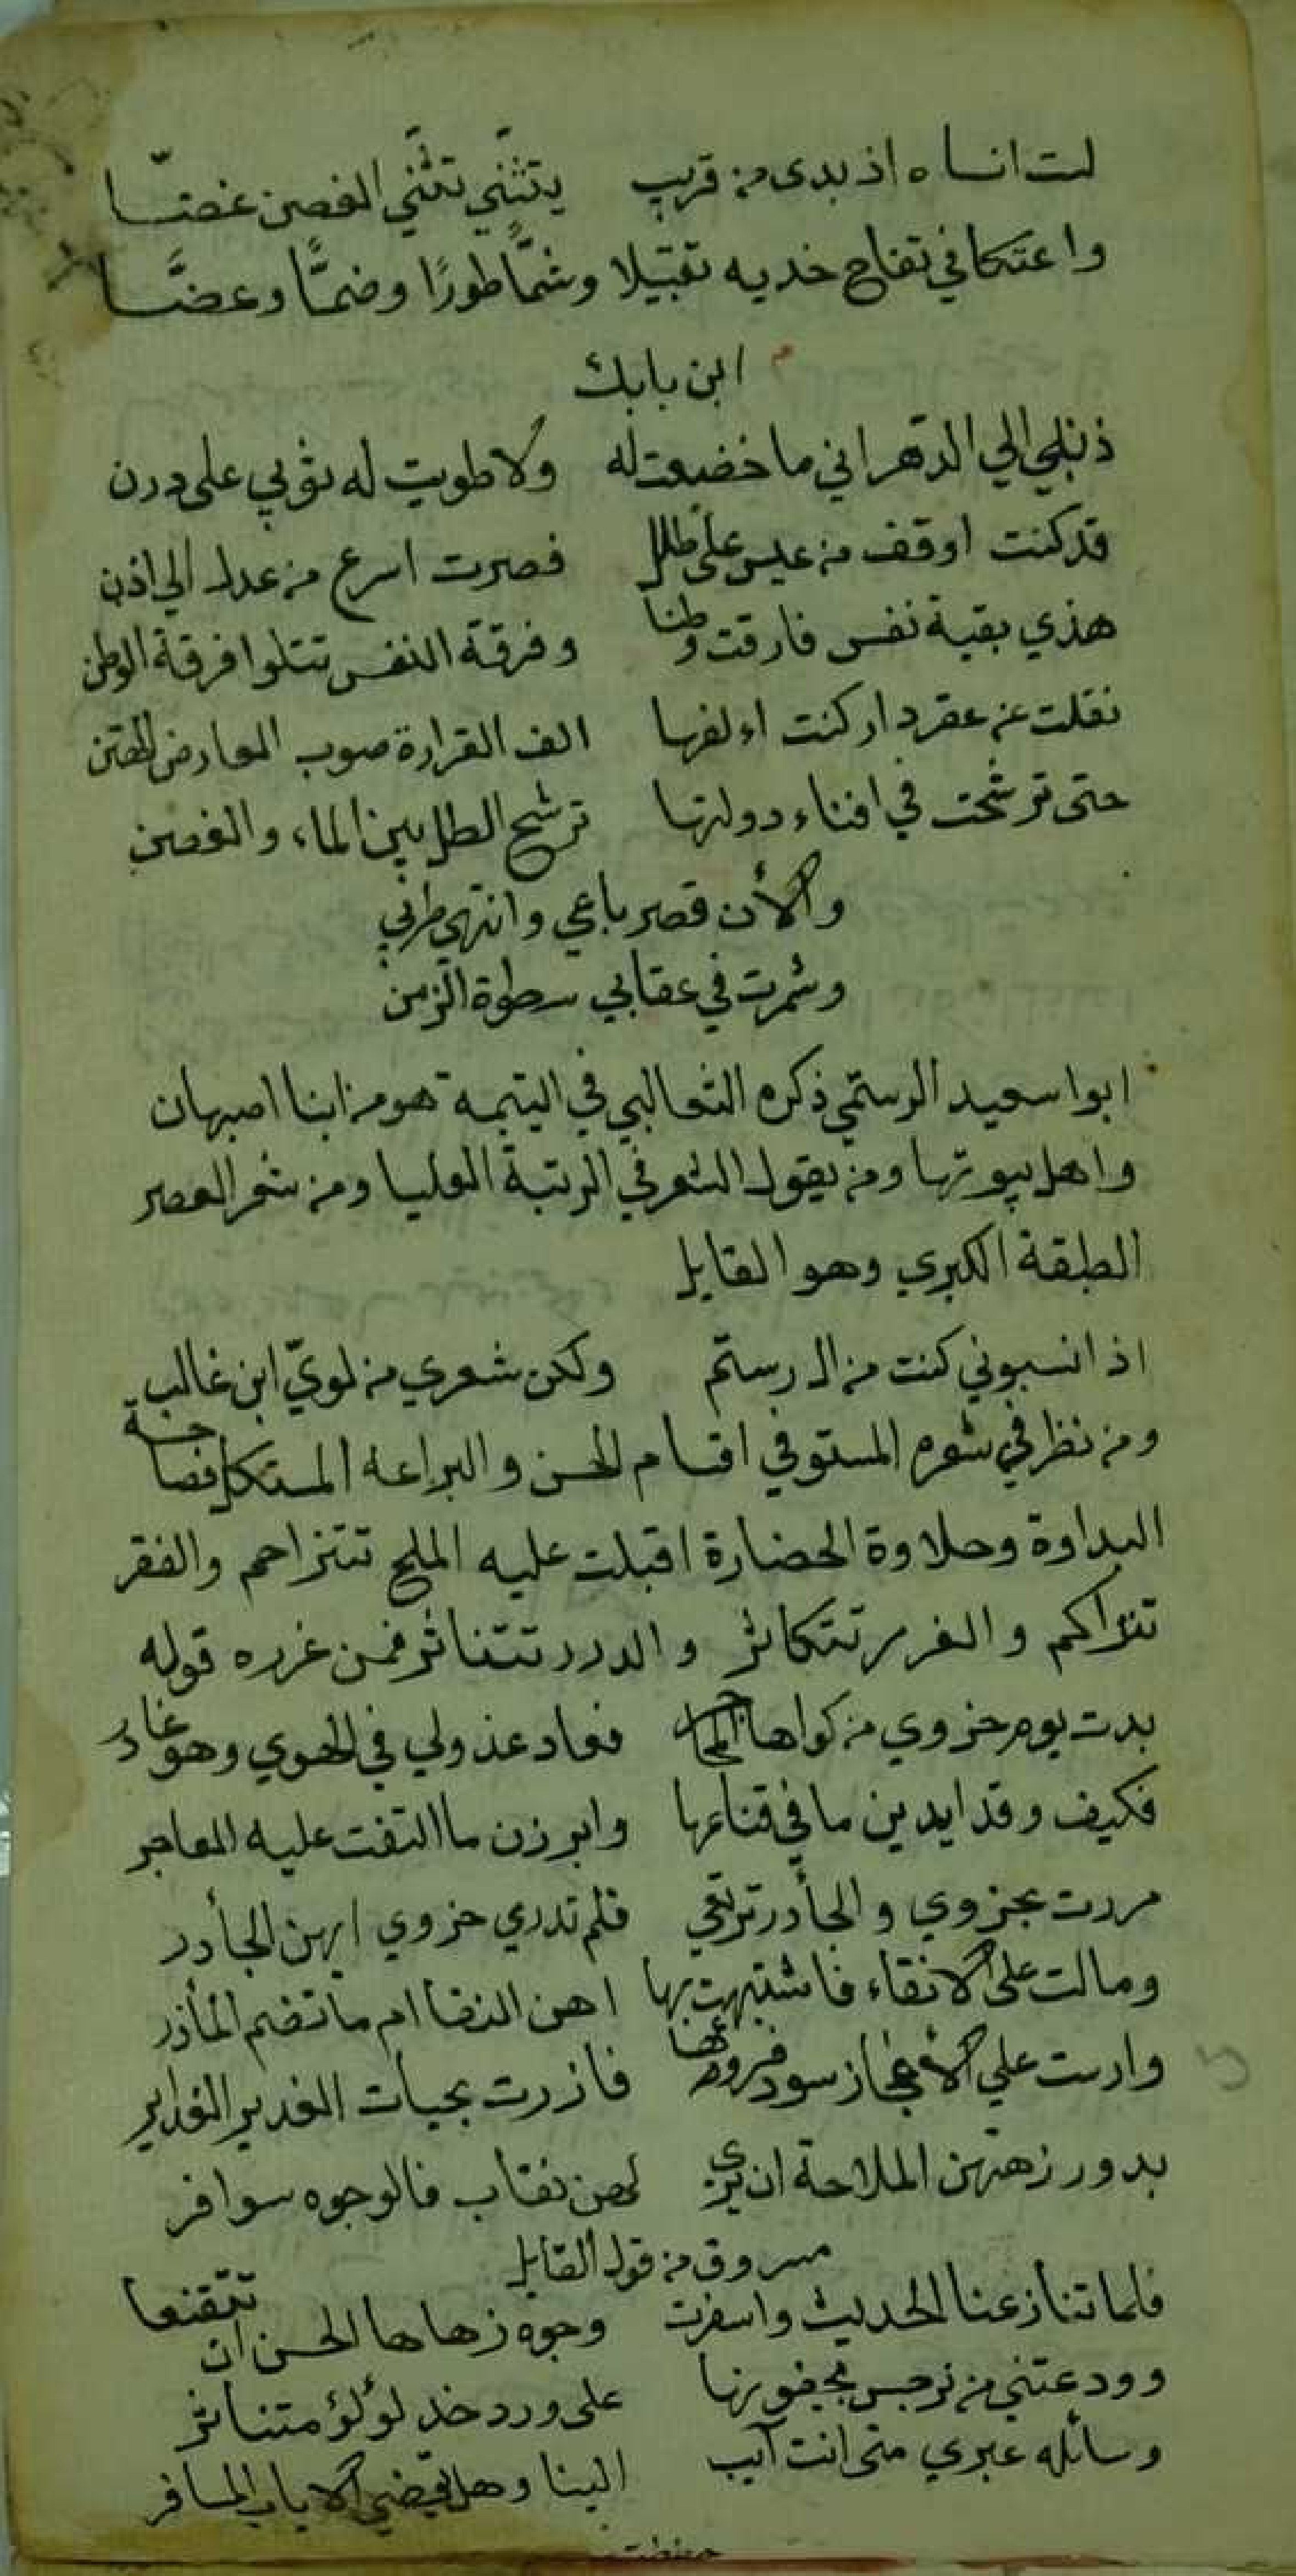 لست انساه اذ بدى من قريب يتثنّي تثنّي الغصن غضّا
واعتكافي تفاح خديه تقبيلا وشمًّا طورًا وضمًّا وعضًّا
ابن بابك
ذنبي الي الدّهر اني ما خضعت له ولا طويت له ثوبي على درن
قد كنت اوقف من عيس على طلل فصرت اسرع من عدل الي اذن
هذي بقية نفس فارقت وطنا وفرقة النفس تتلوا فرقة الوطن
نقلت عن عقر دار كنت اءلفها الف القرارة صوب العارض الهتن
حتى ترشحت في افناء دولتها ترشح الطل بين الماء والغصن
والأن قصر باعي وانتهى طربي
وشمرت في عقابي سطوة الزمن
ابوا سعيد الرستمي ذكره الثعالبي في اليتيمة هو من ابنا اصبهان
واهل بيوتها ومن يقول الشعر في الرتبة العليا ومن شعر العصر
الطبقة الكبري وهو القايل
اذا نسبوني كنت من ال رستم ولكن شعري من لويّ ابن غالب
ومن نظر في شعره المستوفي اقسام الحسن والبراعة المستكمل فصاحة
البداوة وحلاوة الحضارة اقبلت عليه الملح تتزاحم والفقر
تتراكم والغرر تتكاثر والدرر تتناثر فمن غرره قوله
بدت يوم حزوي من كواها المحاجر فعاد عذولي في الهوي وهو عاذر
فكيف وقد ابدين ما في قناعها وابرزن ما التفت عليه المعاجر
مررت بحزوي والجأدر ترتقي فلم تدري حزوي ايهن الجأدر
ومالت على الانقاء فاشتبهت بها اهن النقا ام ما تضم المأذر
وارست علي الأعجاز سود فروعها فازرت بحيات الغدير الغداير
بدور زهتهن الملاحة ان يرى لهن نقاب فالوجوه سوافر
مسروق من قول القايل
فلما تنازعنا الحديث واسفرت وجوه زهاها الحسن ان تتقنعا
وودعتني من نرجس بجفونها على ورد خد لؤلؤ متناثر
وسائله عبري متى انت آيب الينا وهل يقضي الاياب المسافر